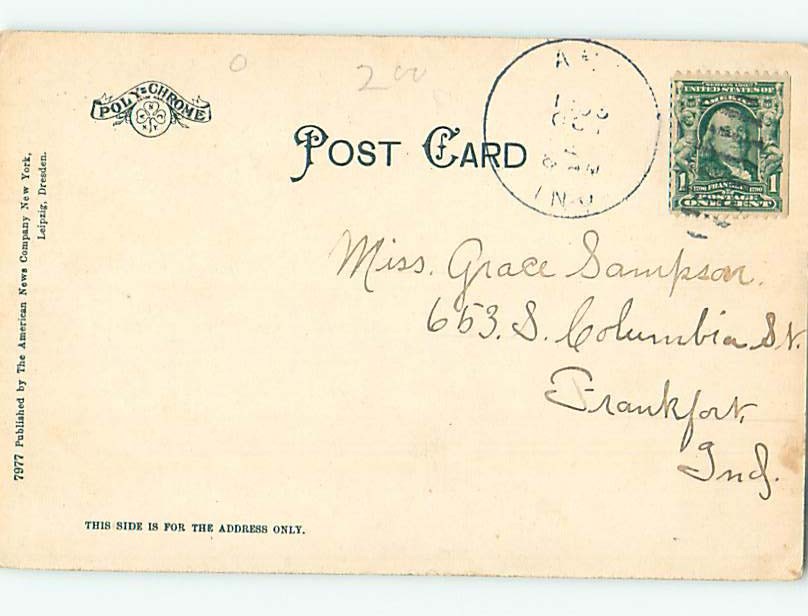 0
2 00
POLY=CHROME
POST CARD
SERIES 1902
UNITED STATES OF
AMERICA
1 1790 FRANKLIN 1790 1
POSTAGE
ONE CENT
IND
Miss. Grace Sampson.
653. S. Columbia St.
Frankfort,
Ind.
7977 Published by The American News Company New York,
Leipzig, Dresden.
THIS SIDE IS FOR THE ADDRESS ONLY.